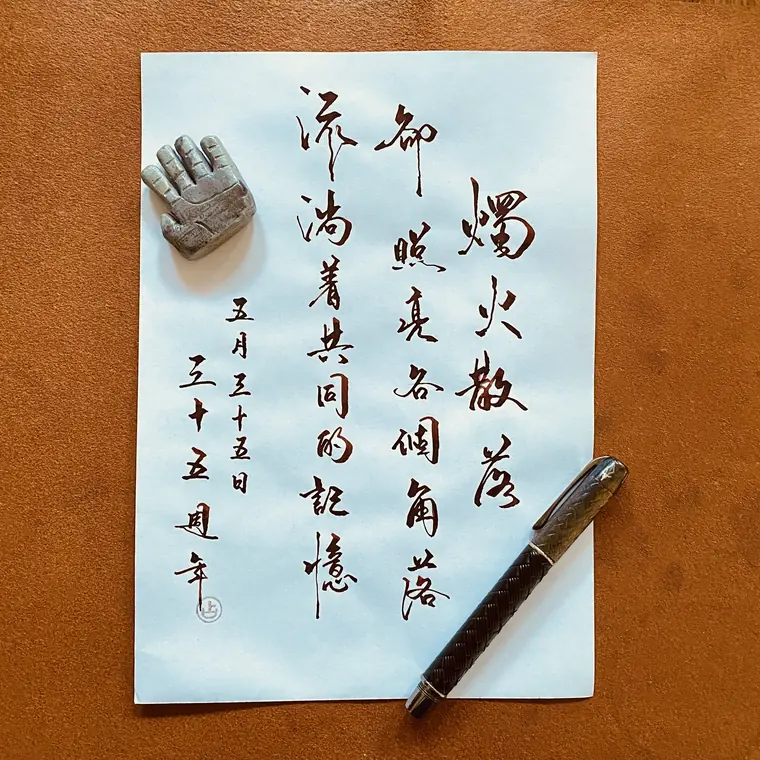 燭火散落
卻照亮各個角落
流淌着共同的記憶
五月三十五日
三十五週年
上